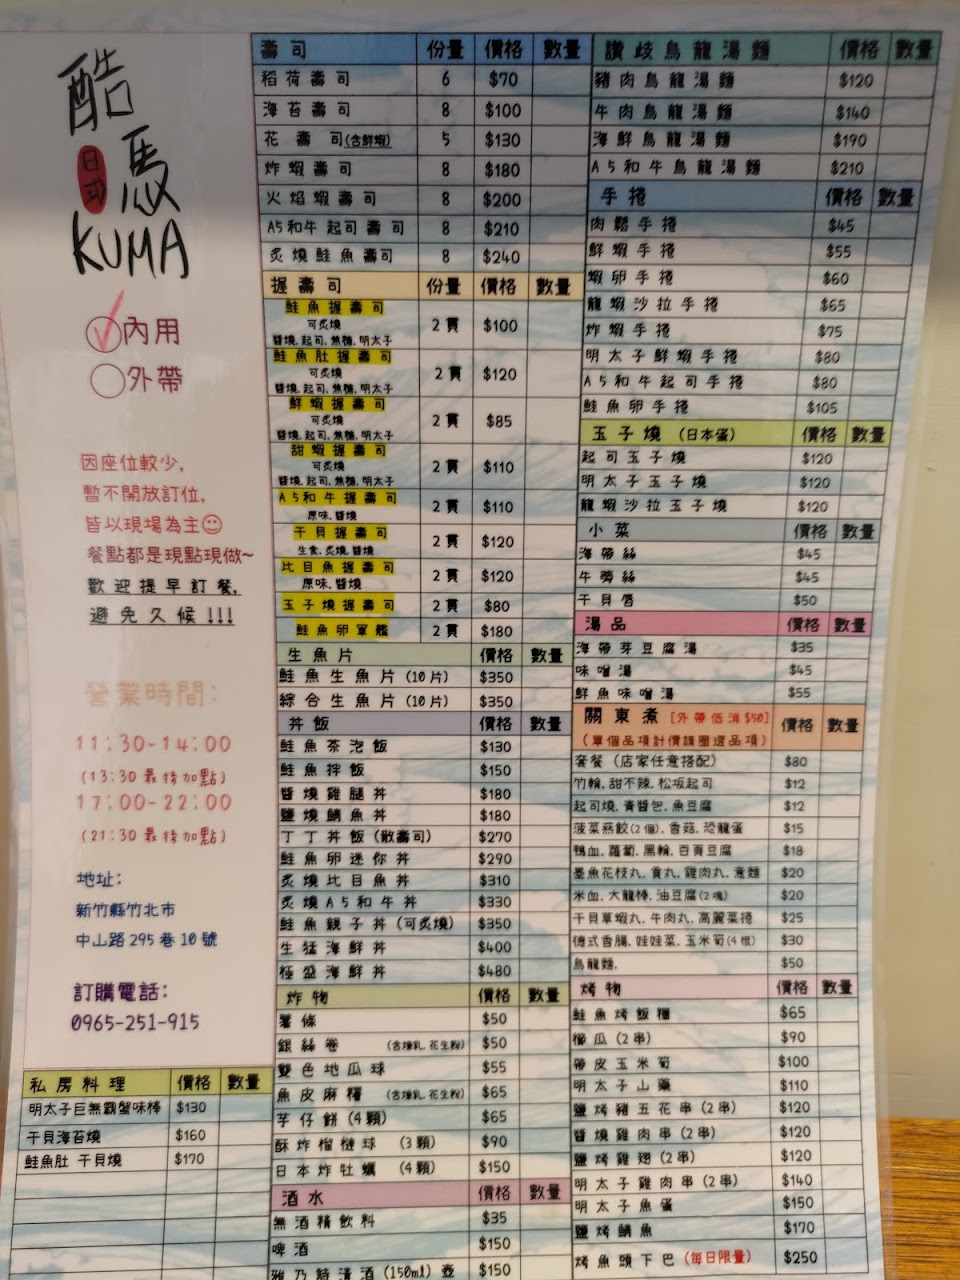 酷
馬
日式
KUMA
內用
外帶
因座位較少,
暫不開放訂位,
皆以現場為主☺
餐點都是現點現做~
歡迎提早訂餐,
避免久候!!!
營業時間:
11:30-14:00
(13:30最後加點)
17:00-22:00
(21:30最後加點)
地址:
新竹縣竹北市
中山路295巷10號
訂購電話:
0965-251-915
私房料理 價格 數量
明太子巨無霸蟹味棒 $130
干貝海苔燒 $160
鮭魚肚 干貝燒 $170
壽司 份量 價格 數量
稻荷壽司 6 $70
海苔壽司 8 $100
花壽司(含鮮蝦) 5 $130
炸蝦壽司 8 $180
火焰蝦壽司 8 $200
A5和牛起司壽司 8 $210
炙燒鮭魚壽司 8 $240
握壽司 份量 價格 數量
鮭魚握壽司
可炙燒
醬燒.起司.焦糖.明太子 2貫 $100
鮭魚肚握壽司
可炙燒
醬燒.起司.焦糖.明太子 2貫 $120
鮮蝦握壽司
可炙燒
醬燒.起司.焦糖.明太子 2貫 $85
甜蝦握壽司
可炙燒
醬燒.起司.焦糖.明太子 2貫 $110
A5和牛握壽司
原味.醬燒 2貫 $110
干貝握壽司
生食.炙燒.醬燒 2貫 $120
比目魚握壽司
原味.醬燒 2貫 $120
玉子燒握壽司 2貫 $80
鮭魚卵軍艦 2貫 $180
生魚片 價格 數量
鮭魚生魚片(10片) $350
綜合生魚片(10片) $350
丼飯 價格 數量
鮭魚茶泡飯 $130
鮭魚拌飯 $150
醬燒雞腿丼 $180
鹽燒鯖魚丼 $180
丁丁丼飯(散壽司) $270
鮭魚卵迷你丼 $290
炙燒比目魚丼 $310
炙燒A5和牛丼 $330
鮭魚親子丼(可炙燒) $350
生猛海鮮丼 $400
極盛海鮮丼 $480
炸物 價格 數量
薯條 $50
銀絲卷 (含煉乳.花生粉) $50
雙色地瓜球 $55
魚皮麻糬 (含煉乳.花生粉) $65
芋仔餅(4顆) $65
酥炸榴槤球 (3顆) $90
日本炸牡蠣 (4顆) $150
酒水 價格 數量
無酒精飲料 $35
啤酒 $150
雅乃詩清酒(150ml)壺 $150
讚歧烏龍湯麵 價格 數量
豬肉烏龍湯麵 $120
牛肉烏龍湯麵 $140
海鮮烏龍湯麵 $190
A5和牛烏龍湯麵 $210
手捲 價格 數量
肉鬆手捲 $45
鮮蝦手捲 $55
蝦卵手捲 $60
龍蝦沙拉手捲 $65
炸蝦手捲 $75
明太子鮮蝦手捲 $80
A5和牛起司手捲 $80
鮭魚卵手捲 $105
玉子燒(日本蛋) 價格 數量
起司玉子燒 $120
明太子玉子燒 $120
龍蝦沙拉玉子燒 $120
小菜 價格 數量
海帶絲 $45
牛蒡絲 $45
干貝唇 $50
湯品 價格 數量
海帶芽豆腐湯 $35
味噌湯 $45
鮮魚味噌湯 $55
關東煮[外帶低消$50]
(單個品項計價請圈選品項) 價格 數量
套餐(店家任意搭配) $80
竹輪.甜不辣.松坂起司 $12
起司燒.青醬包.魚豆腐 $12
菠菜燕餃(2個).香菇.恐龍蛋 $15
鴨血.蘿蔔.黑輪.百頁豆腐 $18
墨魚花枝丸.貢丸.雞肉丸.意麵 $20
米血.大龍棒.油豆腐(2塊) $20
干貝草蝦丸.牛肉丸.高麗菜捲 $25
德式香腸.娃娃菜.玉米筍(4根) $30
烏龍麵. $50
烤物 價格 數量
鮭魚烤飯糰 $65
櫛瓜(2串) $90
帶皮玉米筍 $100
明太子山藥 $110
鹽烤豬五花串(2串) $120
醬燒雞肉串(2串) $120
鹽烤雞翅(2串) $120
明太子雞肉串(2串) $140
明太子魚蛋 $150
鹽烤鯖魚 $170
烤魚頭下巴(每日限量) $250